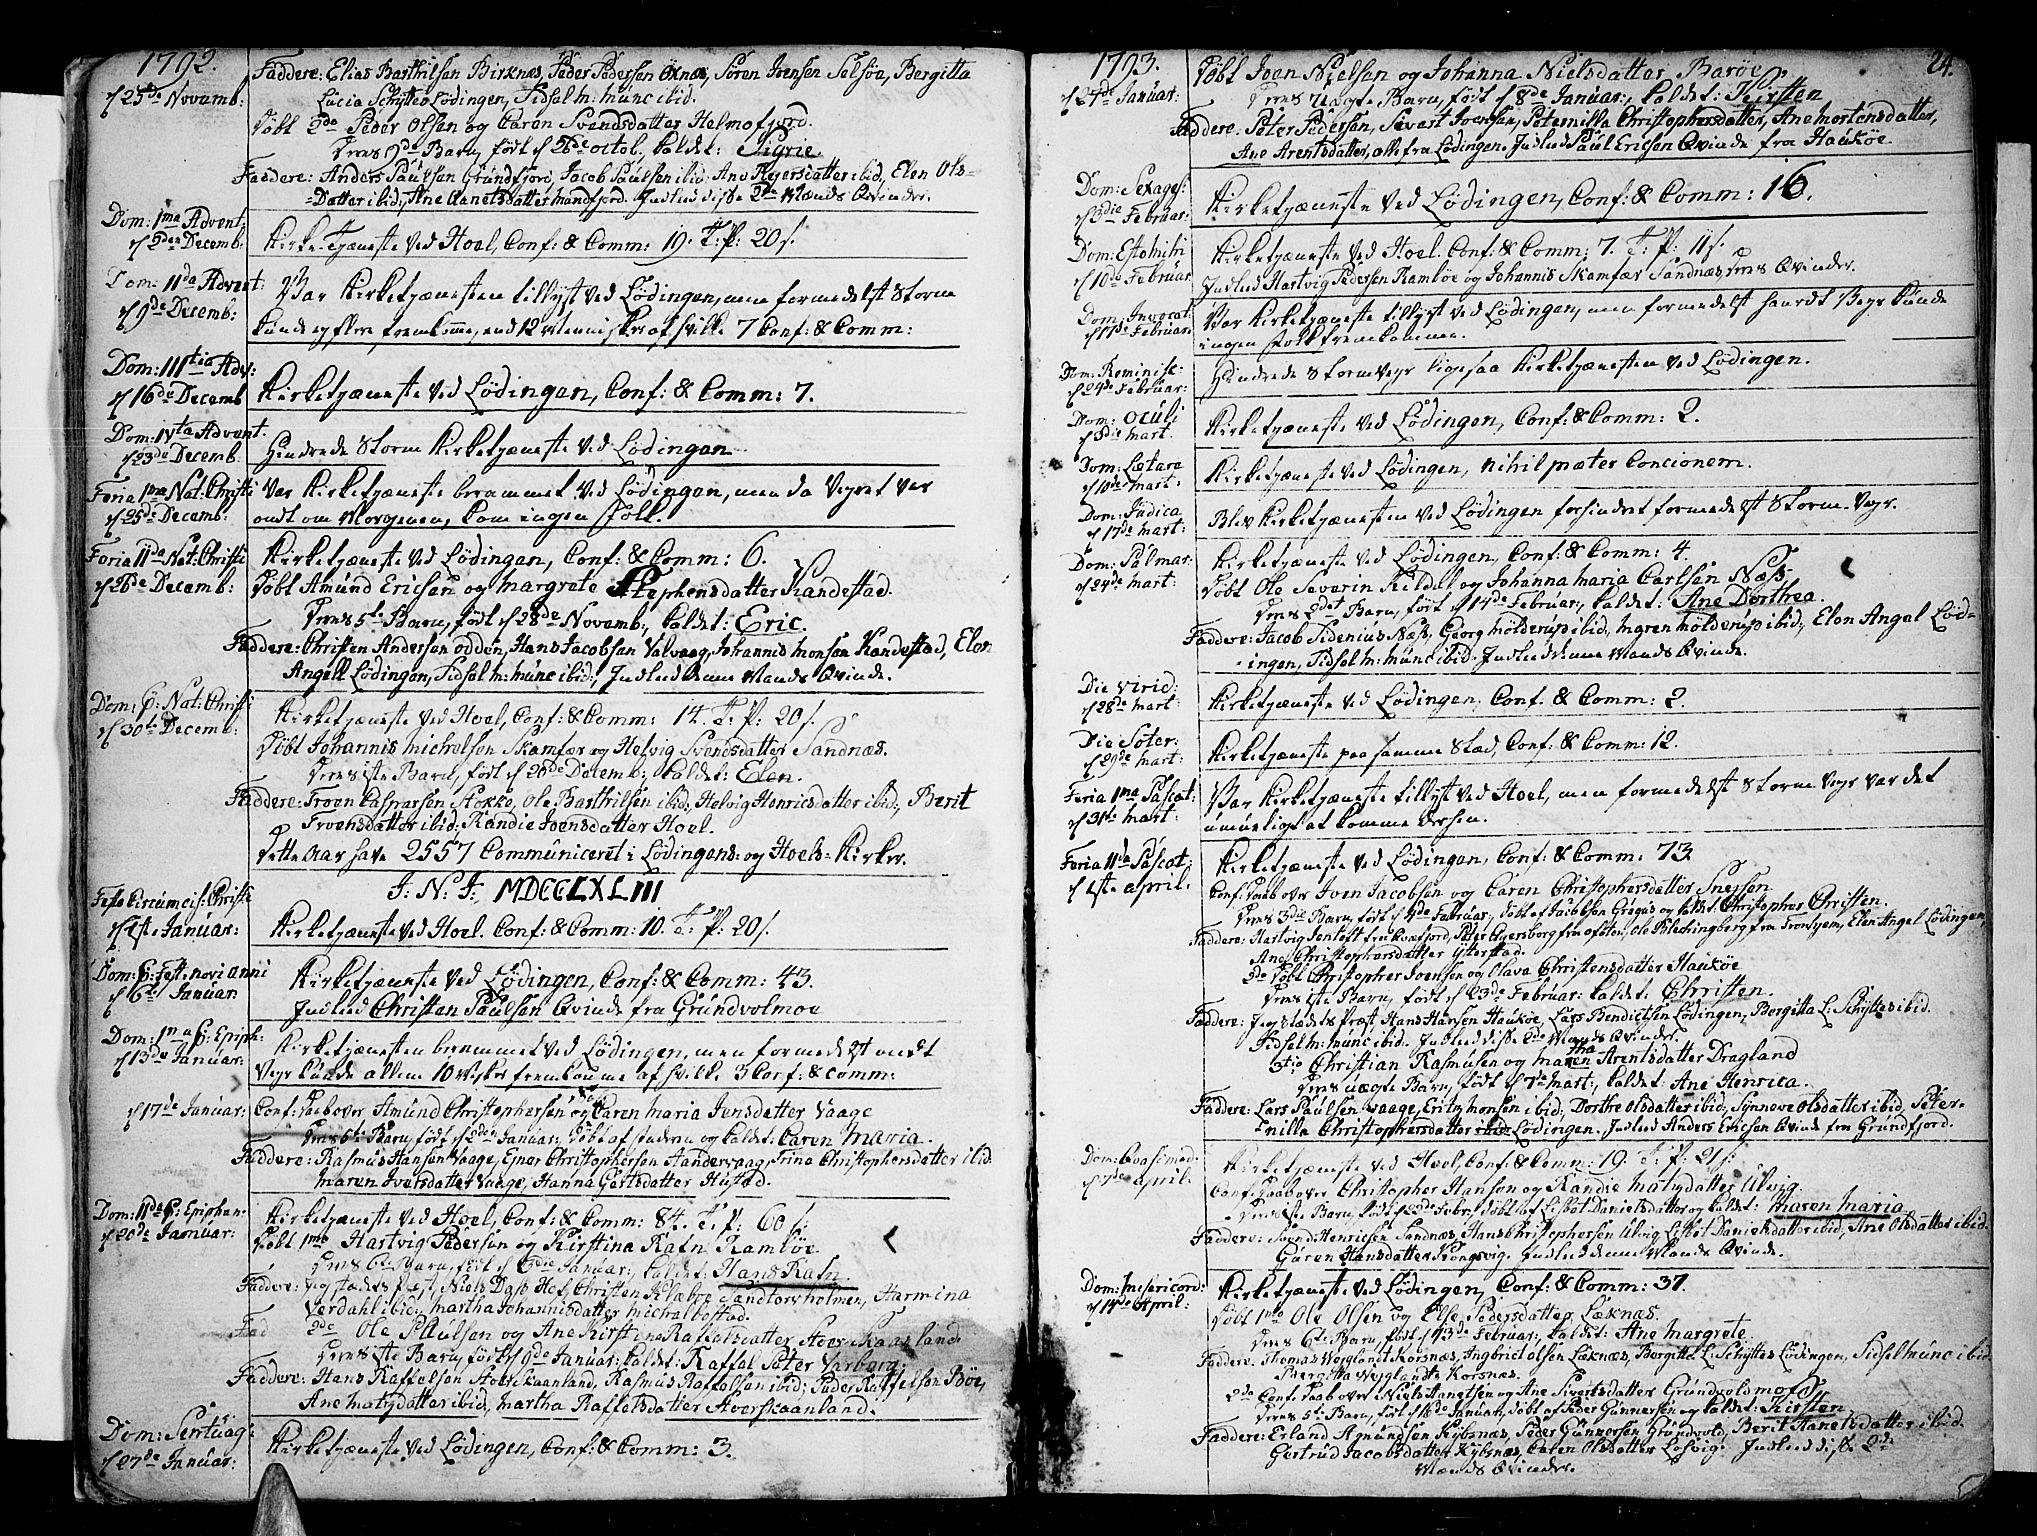 1792.
d 25de Novemb:
Faddere: Elias Barthilsen Birknæs, Peder Pedersen Oxnæs, Sören Joensen Solsöe, Bergitta
Lucia Schyttes Lödingen, Sidsel M: Munc ibid.
Döbt 2de Peder Olsen og Caren Svendsdatter Helmofjord.
Deres Barn, födt d 26de octob, kaldet: Sigrie
Faddere: Anders Paulsen Grundfjord, Jacob Paulsen ibid, Ane Reyersdatter ibid, Elen Ols-
=Datter ibid, Ane Danelsdatter Mandfjord. Indled disse 2de Mænds Qvinder.
Dom: 1ma Advent
d 2den Decemb:
Kirke-Tjæneste ved Hoel, Conf: & Comm: 19. T: P: 20 s.
Dom: 11da Advent:
d 9de Decemb:
Var Kirketjænesten tillyst ved Lödingen, men formedelst Storm
kunde ey flere fremkomme, end 12 Mennisker af hvilke 7 Conf: & Comm:
Dom: 111tia Adv:
d 16de Decemb
Kirketjæneste ved Lödingen, Conf: & Comm: 7.
Dom: 1Vta Advent.
d 23de Decemb:
Hindrede Storm Kirketjæneste ved Lödingen
Feria 1ma Nat: Christi
d 25de Decemb:
Var Kirketjæneste berammet ved Lödingen, men da Veyret var
ondt om Morgenen, kom ingen Folk.
Feria 11da Nat: Christi
d 26de Decemb:
Kirketjæneste ved Lödingen, Conf: & Comm: 6.
Döbt Amund Ericsen og Margrete Stephensdatter Kandestad.
Deres 5te Barn, födt d 28de Novemb, kaldet: Eric.
Faddere: Christen Andersen Odden, Hans Jacobsen Valvaag, Johannis Monsen Kandestad, Elen
Angell Lödingen, Sidsel M: Munc ibid, Indled denne Mands Qvinde.
Dom: P: Nat: Christi
d 30te Decemb:
Kirketjæneste ved Hoel, Conf: & Comm: 14. T: P: 20 s.
Döbt Johannis Michelsen Skamfær og Helvig Svendsdatter Sandnæs.
Deres 1ste Barn, födt d 20de Decemb, kaldet: Elen.
Faddere: Troen Casparsen Stokke, Ole Barthilsen ibid, Helvig Henricsdatter ibid, Berit
Troensdatter ibid, Randie Joensdatter Hoel.
Dette Aar have 2557 Communiceret i Lödingens- og Hoels-Kirker.
J: N: J: MDCCLXLIII
Festo Circumcis: Christi
d 1ste Januar:
Kirketjæneste ved Hoel. Conf: & Comm: 10. T: P: 20 s.
Dom: P: Fest: novi anni
d 6te Januar
Kirketjæneste ved Lödingen, Conf: & Comm: 43.
Indled Christen Paulsen Qvinde fra Grundvolmoe
Dom: 1ma P: Epiph:
d 13de Januar:
Kirketjænesten berammet ved Lödingen, men formedelst ondt
Veyr kunde allene 10 Msker fremkomme af hvilke 3 Conf: & Comm:
d 17de Januar:
Conf: Daab over Amund Christophersen og Caren Maria Jensdatter Vaage
Deres 6te Barn, födt d 2den Januar, döbt af og kaldet: Caren Maria.
Faddere: Rasmus Hansen Vaage, Ejner Christophersen Sandervaag, Trina Christophersdatter ibid:
Maren Iversdatter Vaage, Hanna Gertsdatter Hustad.
Dom: 11da P: Epiphan:
d 20de Januar:
Kirketjæneste ved Hoel, Conf: & Comm: 84. T: P: 60 s.
Döbt 1mo Hartvig Pedersen og Kirstina Rafn Ramlöe
Deres 6te Barn, födt d 6die Januar, kaldet: Hans Rafn.
Faddere: Jeg stædets Præst, Niels Dass Hof, Christen Klabre Sandtorvholmen, Harmina
Verdahl ibid, Martha Johannisdatter Michalbostad.
2de Ole Paulsen og Ane Kirstine Raffelsdatter Hoverskaanland.
Deres 1ste Barn, födt d 9de Januar: kaldet: Raffal Peter Varberg.
Faddere: Hans Raffelsen Hoverskaanland, Rasmus Raffelsen ibid; Peder Raffelsen Böe,
Ane Matysdatter ibid, Martha Raffelsdatter Hoverskaanland.
Dom: Septuag:
d 27de Januar:
Kirketjæneste ved Lödingen, Conf: & Comm: 3.
1793.
24.
d 27de Januar:
Döbt Joen Nielsen og Johanna Nielsdatter Baröe
Deres Uægte Barn, födt d 8de Januar, kaldet: Kirsten
Faddere: Peter Pedersen, Sivert Joensen, Peternilla Christophersdatter, Ane Mortensdatter,
Ane Arentsdatter, alle fra Lödingen. Indled Paul Ericsen Qvinde fra Hauköe
Dom: Sexages:
d 3die Februar:
Kirketjæneste ved Lödingen, Conf: & Comm: 16.
Dom: Estomihi
d 10de Februar
Kirketjæneste ved Hoel. Conf: & Comm: 7. T: P: 11 s.
Indled Hartvig Pedersen Ramlöe og Johannis Skamfær Sandnæs, deres Qvinder.
Dom: Invocat
d 17de Februar:
Var Kirketjæneste tillyst ved Lödingen, men formedelst haardt Veyr kunde
ingen Folk fremkomme.
Dom: Reminisc:
d 24de Februar:
Hindrede Stormveyr ligesaa Kirketjænesten ved Lödingen.
Dom: Oculi
d 3die Mart:
Kirketjæneste ved Lödingen, Conf: & Comm: 2.
Dom: Lætare
d 10de Mart:
Kirketjæneste ved Lödingen, nihil præter Concionem.
Dom: Judica
d 17de Mart:
Blev Kirketjænesten ved Lödingen forhindret formedelst Storm-Veyr.
Dom: Palmar:
d 24de Mart:
Kirketjæneste ved Lödingen, Conf: & Comm: 4.
Döbt Ole Severin Kildal og Johanna Maria Carlsen Næss
Deres 2det Barn, födt d 14de Februar, kaldet: Ane Dorthea.
Faddere: Jacob Sidenius Næss, Georg Mölderup ibid, Maren Mölderup ibid, Elen Angel Löd-
ingen, Sidsel M: Munc ibid. Indled denne Mands Qvinde.
Die Virid:
d 28de Mart:
Kirketjæneste ved Lödingen, Conf: & Comm: 2.
Die Soter:
d 29de Mart:
Kirketjæneste paa samme Stæd, Conf: & Comm: 12.
Feria 1ma Pascat:
d 31te Mart:
Var Kirketjæneste tillyst ved Hoel, men formedelst Storm Veyr var det
umueligt at komme dersen.
Feria 11da Pascat:
d 1ste April.
Kirketjæneste ved Lödingen, Conf: & Comm: 73
Conf: Daab over Iven Jacobsen og Caren Christophersdatter Snessen
Deres 3die Barn, födt d 4de Februar, döbt af Jacobsen Gregus og kaldet: Christopher Christen.
Faddere: Hartvig Jentoft fra Qvæfjord, Peter Agersborg fra Ofoten, Ole Bleckringberg fra Trontyem, Elen Angel Lödingen,
Ane Christophersdatter Ytterstad.
2de Döbt Christopher Ivensen og Olava Christensdatter Hauköe
Deres 1ste Barn, födt d 23de Februar: kaldet: Christen.
Faddere: Jeg stædets Præst, Hans Hansen Hauköe, Lars Bendictsen Lödingen, Bergitta L: Schyttes ibid.
Sidsel M: Munc ibid. Indled disse 2de Mænds Qvinder.
3tio Christian Rasmusen og Martha Arentsdatter Dragland
Deres uægte Barn, födt d 7de Mart, kaldet: Ane Henrica.
Faddere: Lars Paulsen Vaage, Erik Monsen ibid, Dorthe Olsdatter ibid, Synneve Olsdatter ibid, Peter-
nilla Christophersdatter ibid Lödingen. Indled Anders Ericsen Qvinde fra Grundfjord.
Dom: Qvasimod:
d 7de April.
Kirketjæneste ved Hoel, Conf: & Comm: 19. T: P: 21 s.
Conf: Daab over Christopher Hansen og Randie Matysdatter Ulvig.
Deres 1ste Barn, födt d 2de Febr, döbt af Lisbet Danielsdatter og kaldet: Maren Maria
Faddere: Svend Henricsen Sandnæs, Hans Christophersen Ulvig, Lisbet Danielsdatter ibid, Ane Olsdatter ibid.
Garen Hansdatter Kongsvig. Indled denne Mands Qvinde.
Dom: Misericord:
d 14de April:
Kirketjæneste ved Lödingen, Conf: & Comm: 37.
Döbt 1mo Ole Olsen og Else Pedersdatter Læknæs.
Deres 6te Barn, födt d 13de Februar; kaldet: Ane Margrete
Faddere: Thomas Weyglandt Korsnæs, Ingbrict Olsen Læknæs, Bergitta L: Schyttes Lödingen, Sidsel Munc ibid.
Bergitta Weyglandts Korsnæs.
2de Conf: Daab over Niels Hanetsen og Ane Sivertsdatter Grundvoldmoss
Deres 5te Barn, födt d 16de Januar, döbt af Peder Gunnersen og kaldet: Kirsten
Faddere: Erland Amundsen Kybsnæs, Peder Gunnersen Grundvold, Berit Danelsdatter ibid.
Gertrud Jacobsdatter Kybsnæs, Caren Olsdatter Losvig. Indled disse 2de
Mænds Qvinder.